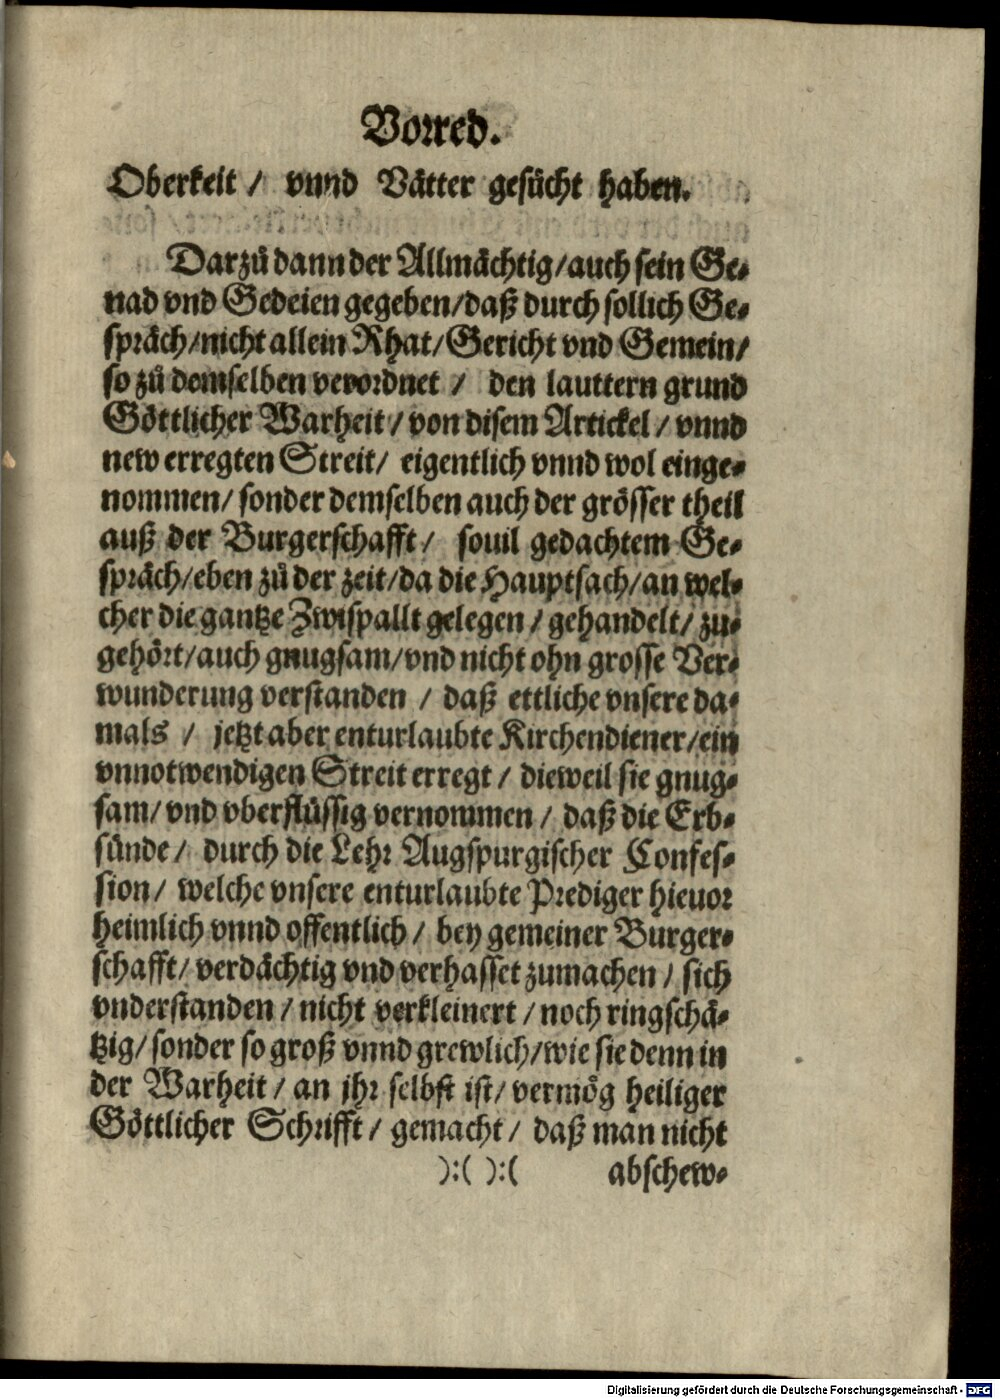 Vorred.
Oberkeit / vnnd Vätter gesücht haben.
Darzů dann der Allmächtig/auch sein Ge-
nad vnd Gedeien gegeben/daß durch sollich Ge-
spräch/nicht allein Rhat/Gericht vnd Gemein/
so zů demselben verordnet / den lauttern grund
Göttlicher Warheit / von disem Artickel / vnnd
new erregten Streit/ eigentlich vnnd wol einge-
nommen/ sonder demselben auch der grösser theil
auß der Burgerschafft / souil gedachtem Ge-
spräch/eben zů der zeit/da die Hauptsach/an wel-
cher die gantze Zwispallt gelegen / gehandelt/ zu-
gehört/auch gnugsam/vnd nicht ohn grosse Ver-
wunderung verstanden / daß ettliche vnsere da-
mals / jetzt aber enturlaubte Kirchendiener/ein
vnnotwendigen Streit erregt / dieweil sie gnug-
sam/ vnd vberflüssig vernommen / daß die Erb-
sünde / durch die Lehr Augspurgischer Confes-
sion/ welche vnsere enturlaubte Prediger hieuor
heimlich vnnd offentlich / bey gemeiner Burger-
schafft/ verdächtig vnd verhasset zumachen / sich
vnderstanden / nicht verkleinert / noch ringschä-
tzig/ sonder so groß vnnd grewlich/wie sie denn in
der Warheit / an jhr selbst ist/ vermög heiliger
Göttlicher Schrifft / gemacht / daß man nicht
):( ):( abschew-
Digitalisierung gefördert durch die Deutsche Forschungsgemeinschaft - DFG